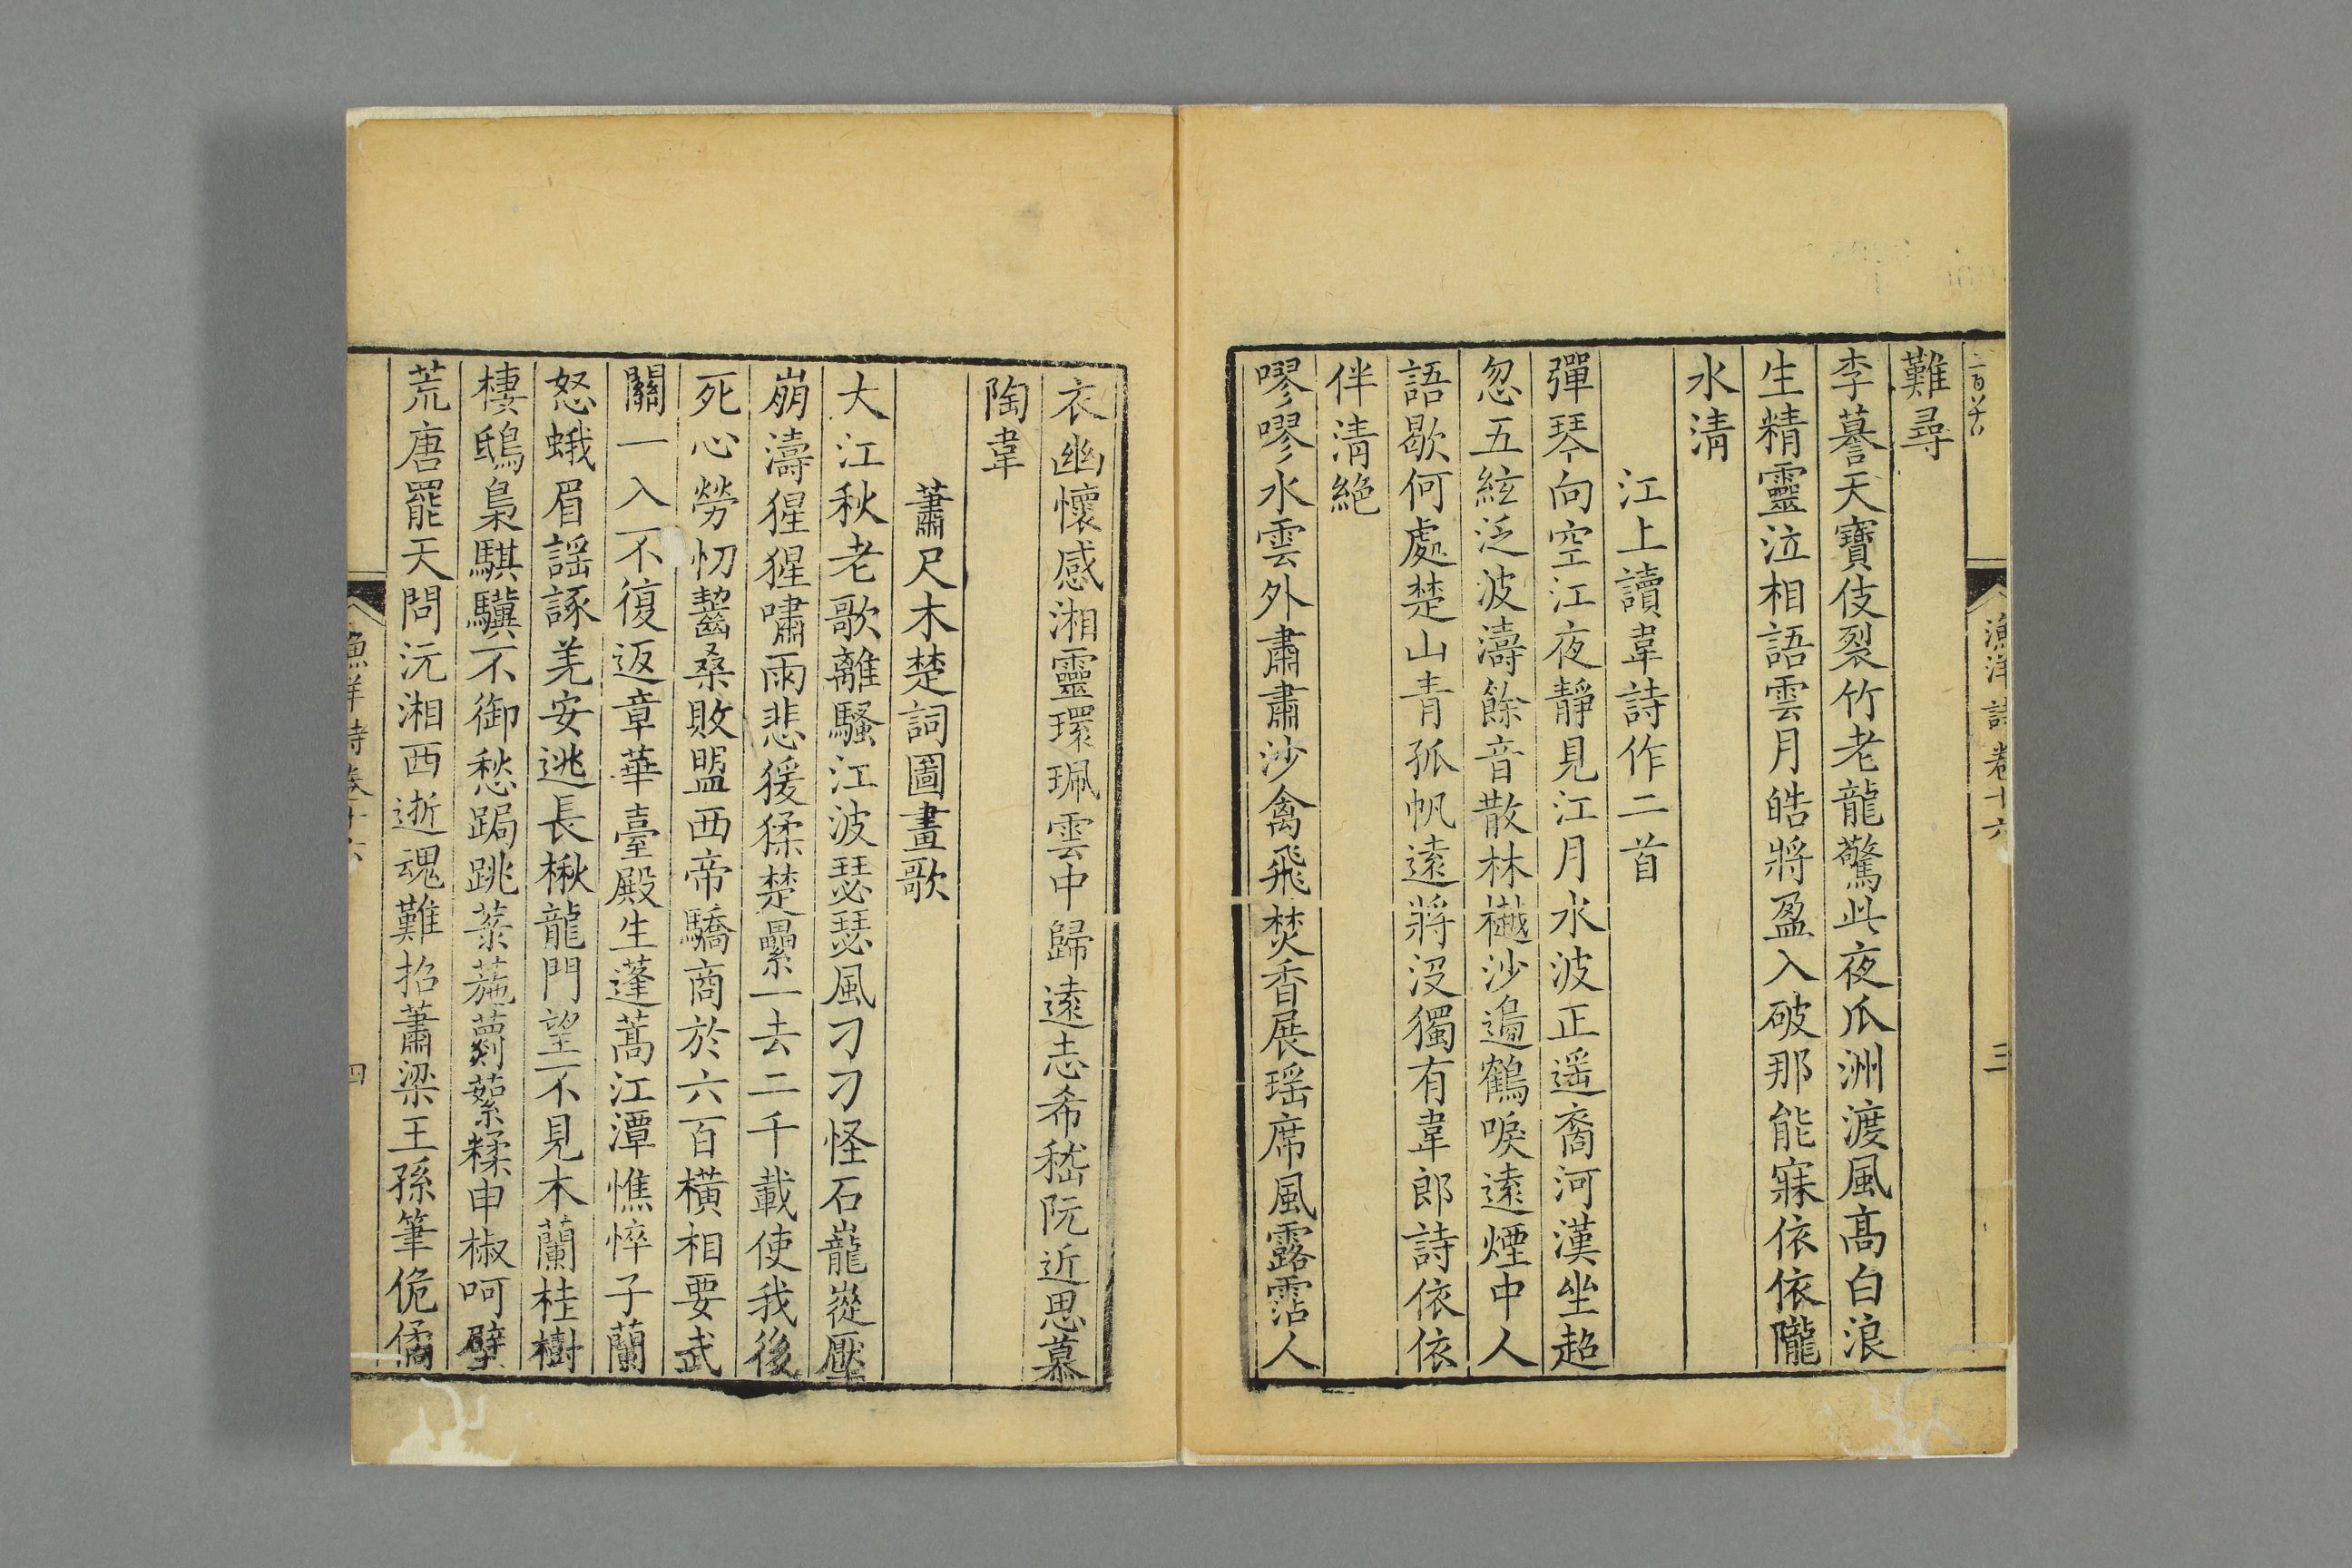 漁洋詩卷十六
三
難尋
李謩天寶伎裂竹老龍驚此夜瓜洲渡風高白浪
生精靈泣相語雲月皓將盈入破那能寐依依隴
水清
江上讀韋詩作二首
彈琴向空江夜靜見江月水波正遥裔河漢坐超
忽五絃泛波濤餘音散林樾沙邉鶴唳遠煙中人
語歇何處楚山青孤帆遠將没獨有韋郎詩依依
伴清絶
嘐嘐水雲外肅肅沙禽飛焚香展瑶席風露霑人
衣幽懷感湘靈環珮雲中歸遠志希嵇阮近思慕
陶韋
蕭尺木楚詞圖畫歌
大江秋老歌離騷江波瑟瑟風刁刁怪石巃嵸壓
崩濤猩猩嘯雨悲猨猱楚纍一去二千載使我後
死心勞忉齧桑敗盟西帝驕商於六百横相要武
關一入不復返章華臺殿生蓬蒿江潭憔悴子蘭
怒蛾眉謡諑羌安逃長楸龍門望不見木蘭桂樹
棲鴟梟騏驥不御愁跼跳菉葹薋蕠糅申椒呵壁
荒唐罷天問沅湘西逝魂難招蕭梁王孫筆佹僪
漁洋詩卷十六
四